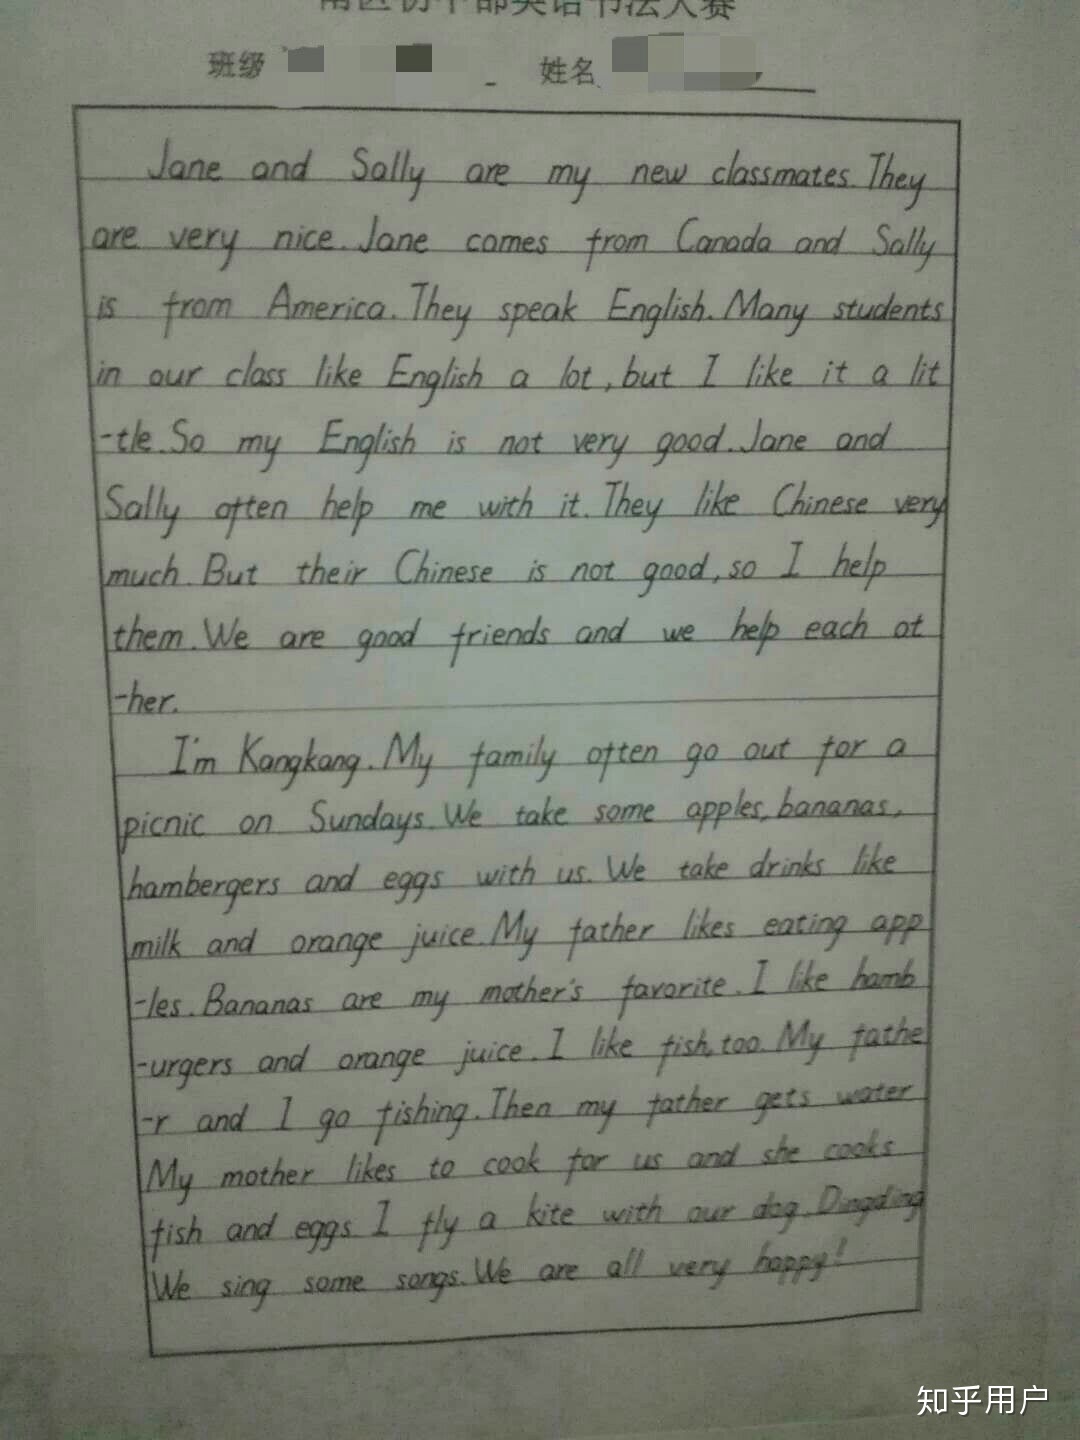 南区初中部英语书法大赛
班级 姓名
Jane and Sally are my new classmates. They
are very nice. Jane comes from Canada and Sally
is from America. They speak English. Many students
in our class like English a lot, but I like it a lit
-tle. So my English is not very good. Jane and
Sally often help me with it. They like Chinese very
much. But their Chinese is not good, so I help
them. We are good friends and we help each ot
-her.
I'm Kangkang. My family often go out for a
picnic on Sundays. We take some apples, bananas,
hambergers and eggs with us. We take drinks like
milk and orange juice. My father likes eating app
-les. Bananas are my mother's favorite. I like hamb
-urgers and orange juice. I like fish, too. My fathe
-r and I go fishing. Then my father gets water
My mother likes to cook for us and she cooks
fish and eggs I fly a kite with our dog. Dingding
We sing some songs. We are all very happy!
知乎用户